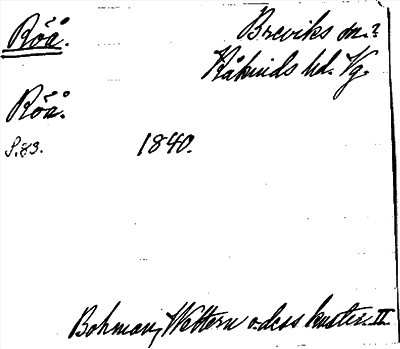 Röå.
Breviks sn.?
Kåkinds hd. Vg.
Röå.
S. 83.
1840.
Bohman, Wettern o. dess kuster. II.